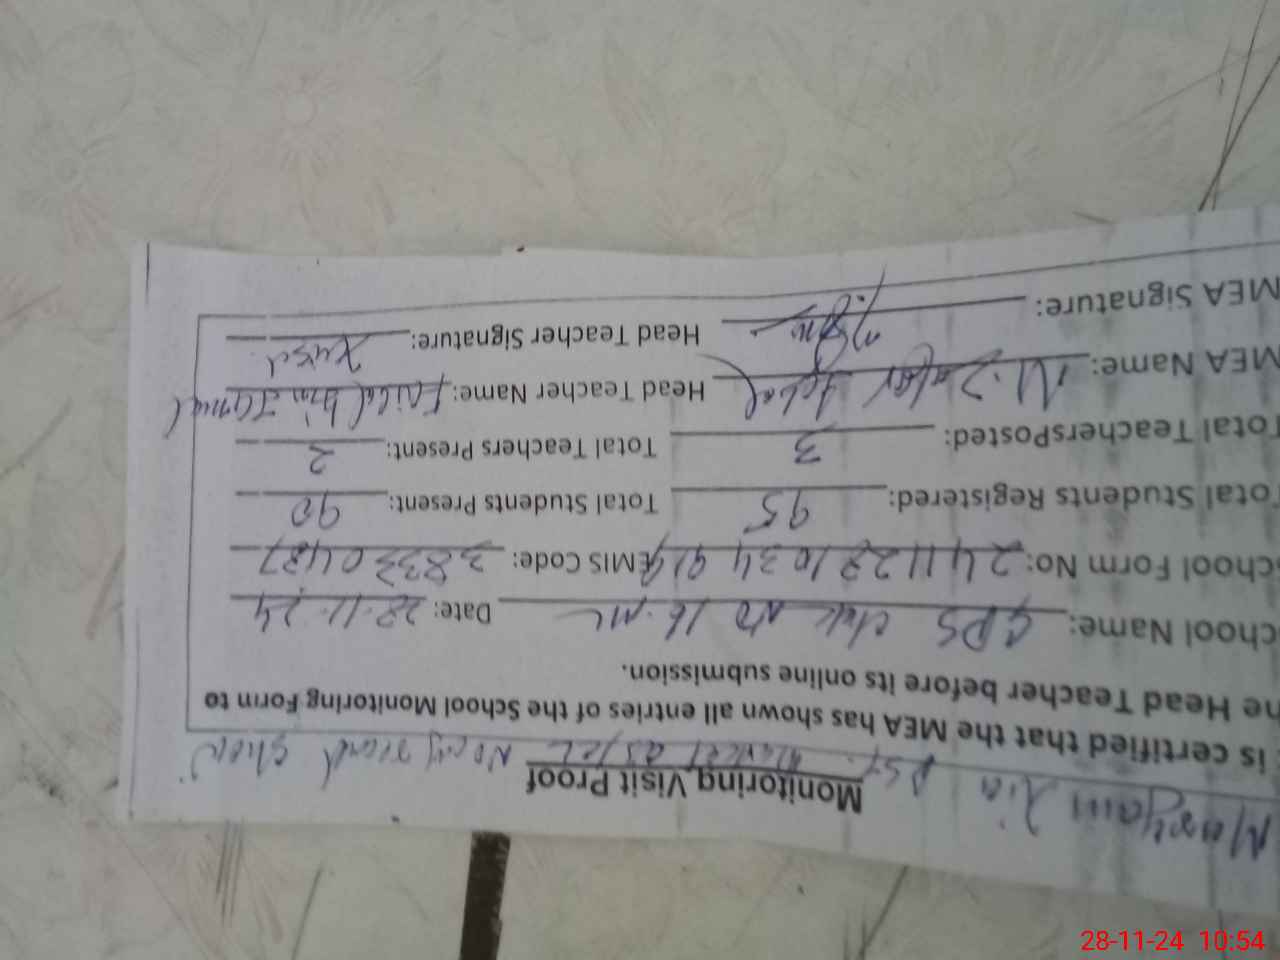 Maryam Zia PST
Monitoring Visit Proof
is certified that the MEA has shown all entries of the School Monitoring Form to
he Head Teacher before its online submission.
chool Name: GPS chak No 16. ML Date: 28-11-24
chool Form No: 241128 1034 919 EMIS Code: 38330487
Total Students Registered: 95 Total Students Present: 90
Total TeachersPosted: 3 Total Teachers Present: 2
MEA Name: M. Zafar Iqbal Head Teacher Name: bin
MEA Signature: Head Teacher Signature:
28-11-24 10:54